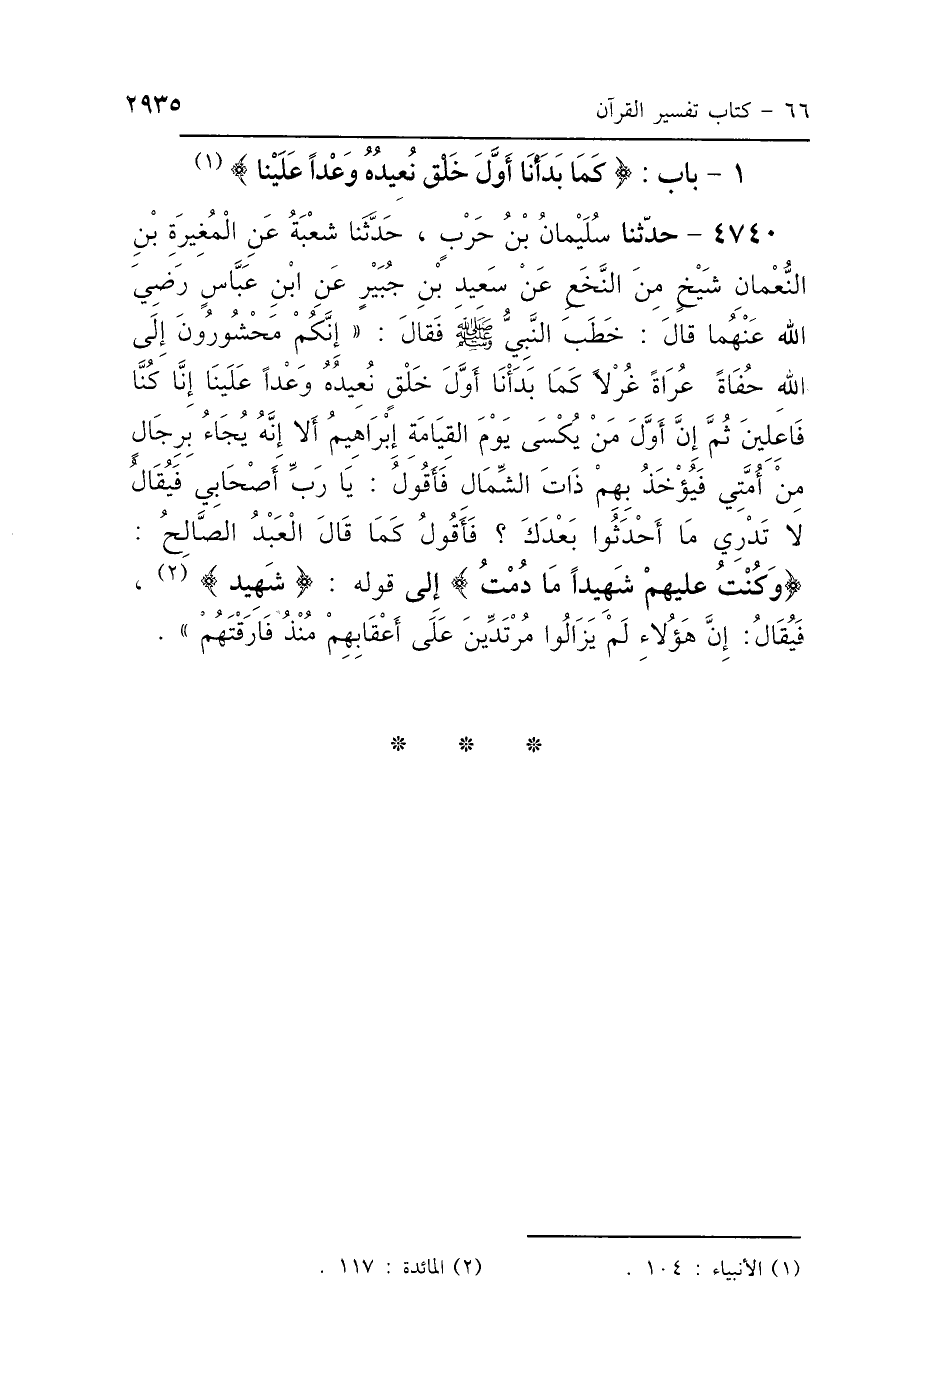 ٦٦ - كتاب تفسير القرآن ٢٩٣٥
١ - باب : ﴿ كَمَا بَدَأْنَا أَوَّلَ خَلْقٍ نُعِيدُهُ وَعْداً عَلَيْنا ﴾ (١)
٤٧٤٠ - حدّثنا سُلَيْمانُ بْنُ حَرْبٍ ، حَدَّثَنا شعْبَةُ عَنِ الْمُغِيرَةِ بْنِ
النُّعْمانِ شَيْخٍ مِنَ النَّخَعِ عَنْ سَعِيدِ بْنِ جُبَيْرٍ عَنِ ابْنِ عَبَّاسٍ رَضِيَ
الله عَنْهُما قالَ : خَطَبَ النَّبِيُّ ﷺ فَقالَ : « إِنَّكُمْ مَحْشُورُونَ إِلَى
الله حُفَاةً عُرَاةً غُرْلاً كَمَا بَدَأْنَا أَوَّلَ خَلْقٍ نُعيدُهُ وَعْداً عَلَينَا إِنَّا كُنَّا
فَاعِلِينَ ثُمَّ إِنَّ أَوَّلَ مَنْ يُكْسَى يَوْمَ القِيَامَةِ إِبْرَاهِيمُ أَلا إِنَّهُ يُجَاءُ بِرِجَالٍ
مِنْ أُمَّتِي فَيُؤْخَذُ بِهِمْ ذَاتَ الشِّمَالِ فَأَقُولُ : يَا رَبِّ أَصْحَابِي فَيُقَالُ
لا تَدْرِي مَا أَحْدَثُوا بَعْدَكَ ؟ فَأَقُولُ كَمَا قَالَ الْعَبْدُ الصَّالِحُ :
﴿وَكُنْتُ عليهمْ شَهِيداً مَا دُمْتُ ﴾ إلى قوله : ﴿ شَهِيد ﴾ (٢) ،
فَيُقَالُ: إِنَّ هَؤُلاءِ لَمْ يَزَالُوا مُرْتَدِّينَ عَلَى أَعْقَابِهِمْ مُنْذُ فَارَقْتَهُمْ » .
(١) الأنبياء : ١٠٤ . (٢) المائدة : ١١٧ .